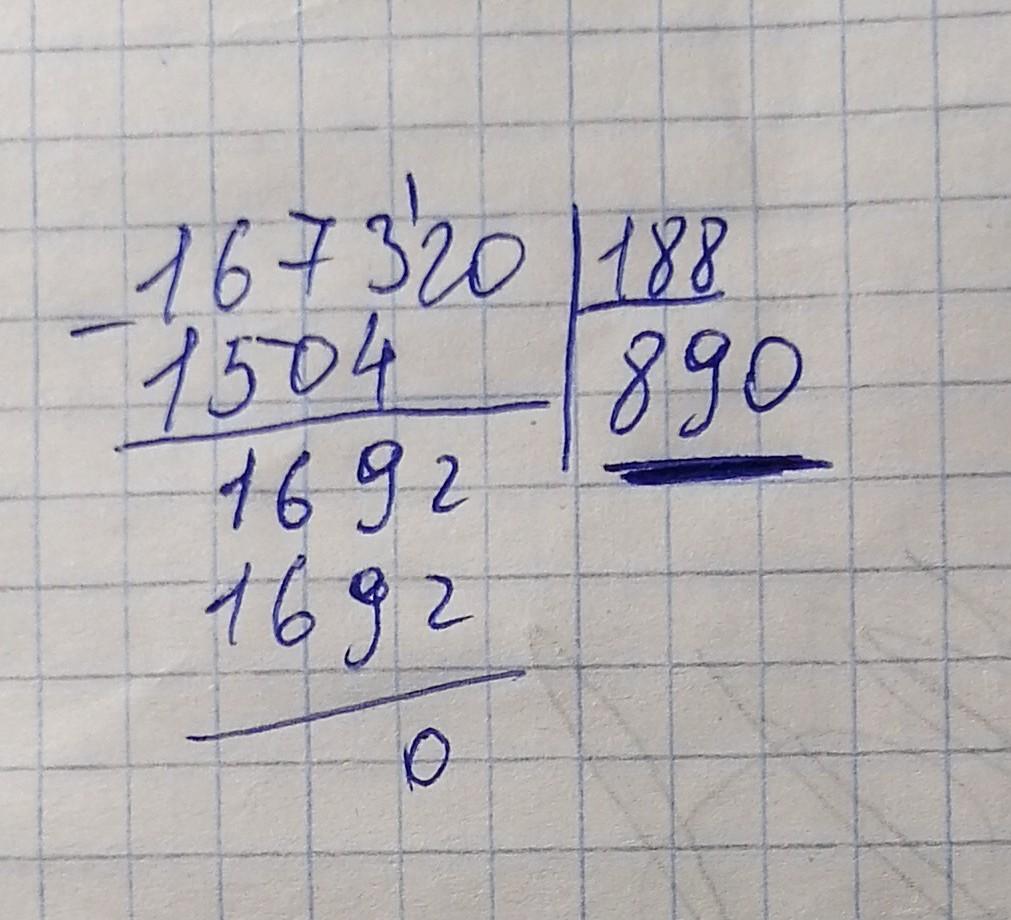 167320 188
- 1504 890
1692
1692
0